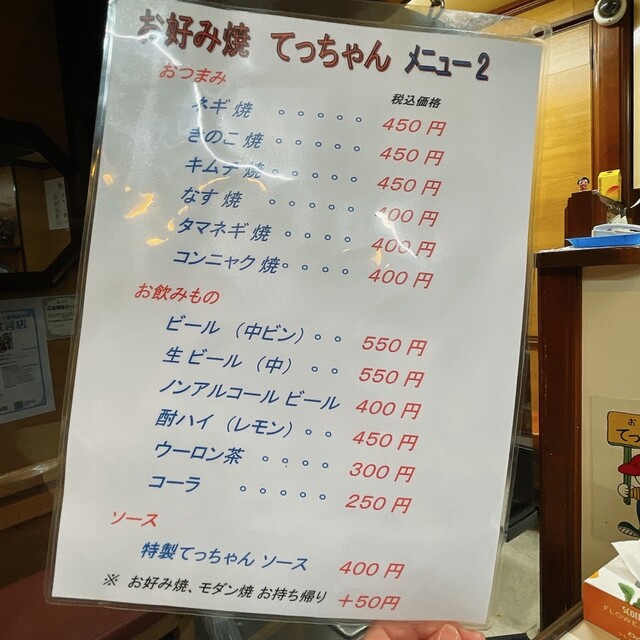 お好み焼 てっちゃん メニュー2
おつまみ
税込価格
ネギ焼 。。。。。 450円
きのこ焼 。。。。。 450円
キムチ焼 。。。。。 450円
なす焼 。。。。。 400円
タマネギ焼 。。。。 400円
コンニャク焼。。。。 400円
お飲みもの
ビール (中ビン)。。 550円
生ビール (中) 。。 550円
ノンアルコールビール 400円
酎ハイ (レモン)。。 450円
ウーロン茶 。。。。 300円
コーラ 。。。。。 250円
ソース
特製てっちゃんソース 400円
※ お好み焼、モダン焼 お持ち帰り +50円
お
てっ
FLOWE